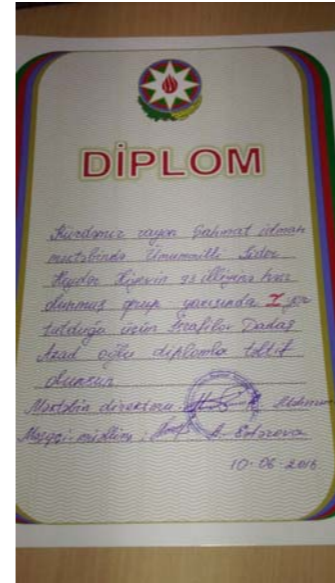 DİPLOM
Kürdəmir rayon Şahmat idman
məktəbində Ümummilli Lider
Heydər Əliyevin 93 illiyinə həsr
olunmuş qrup yarışında I yer
tutduğu üçün İsrafilov Dadaş
Azad oğlu diplomla təltif
olunsun
Məktəbin direktoru:
Məşqçi-müəllim: A.
10-06-2016